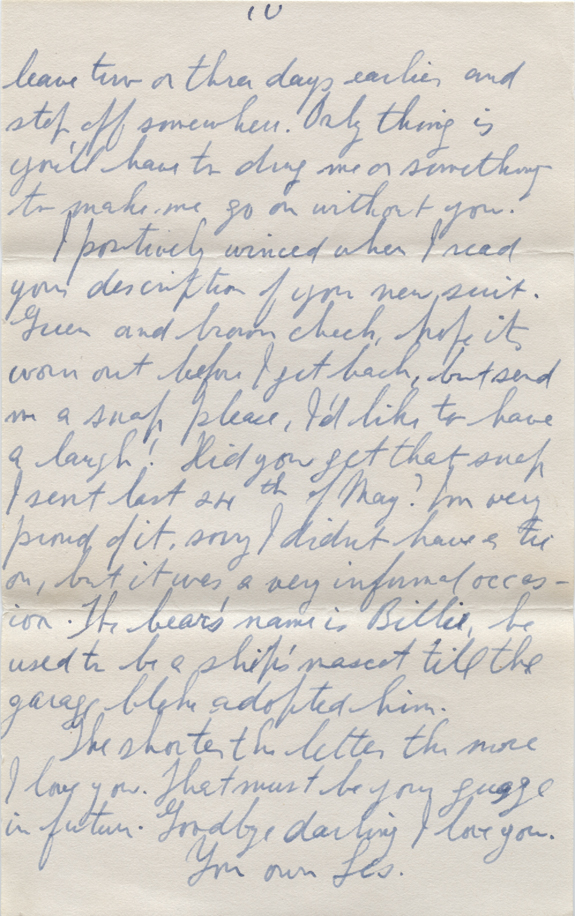 10
leave two or three days earlier and
step off somewhere. Only thing is
you'll have to drug me or something
to make me go on without you.
I positively winced when I read
your description of your new suit.
Green and brown check, hope its
worn out before I get back, but send
me a snap please, I'd like to have
a laugh! Did you get that snap
I sent last th of May? I'm very
proud of it, sorry I didn't have a tie
on, but it was a very informal occas-
ion. The bear's name is Billie, he
used to be a ship's mascot till the
garage bloke adopted him.
The shorter the letter the more
I love you. That must be your guage
in future. Goodbye darling I love you.
Your own Les.